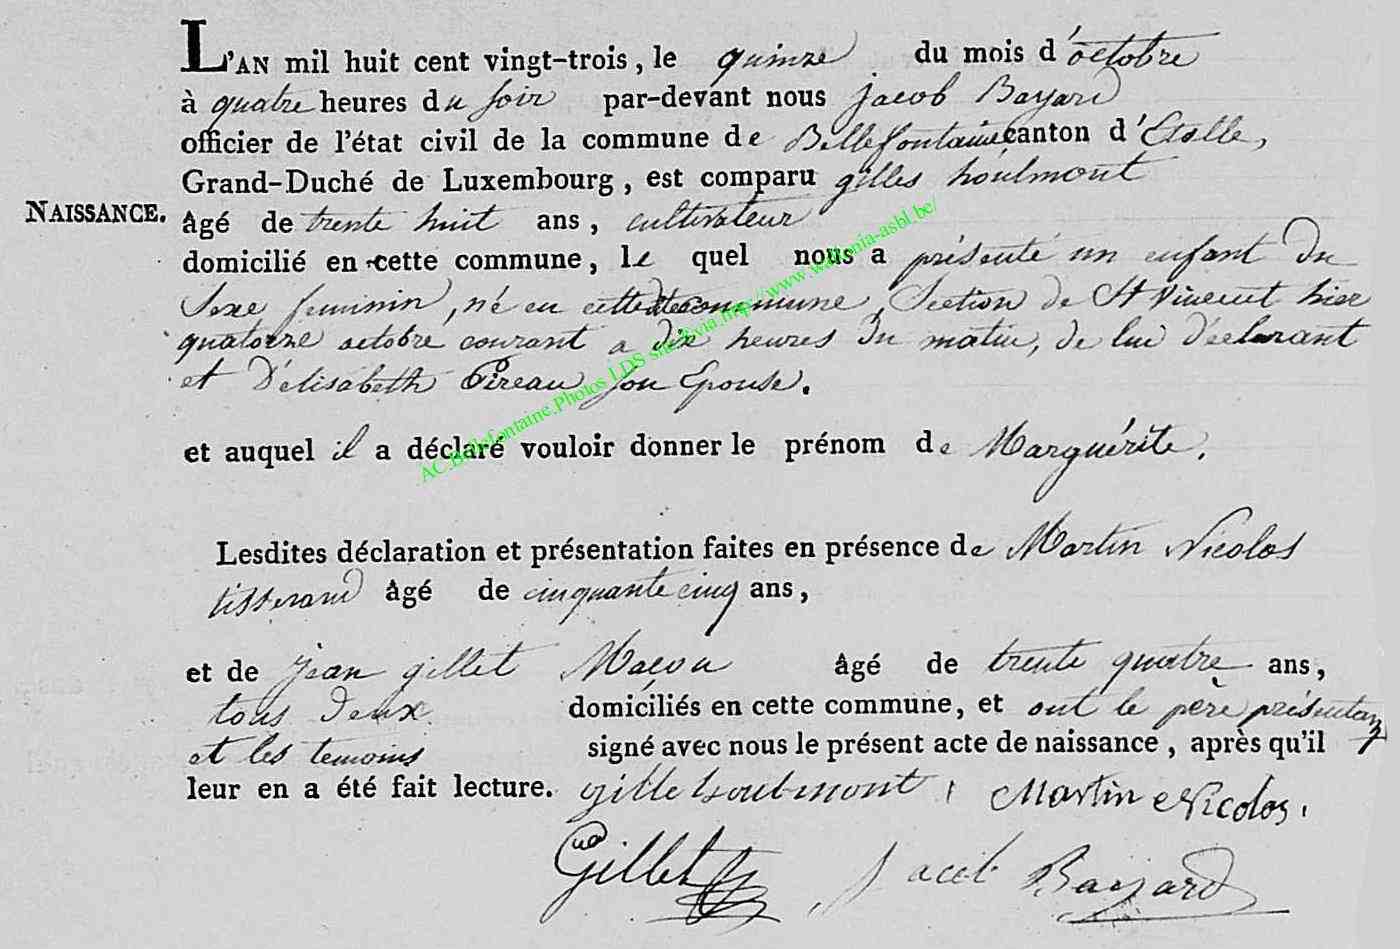 L'AN mil huit cent vingt-trois, le quinze du mois d'octobre
à quatre heures du soir par-devant nous jacob Bayard
officier de l'état civil de la commune de Bellefontaine canton d'Etalle,
Grand-Duché de Luxembourg, est comparu gilles houlmont
NAISSANCE. âgé de trente huit ans, cultivateur
domicilié en cette commune, le quel nous a présenté un enfant du
Sexe feminin, né en cette commune, Section de St Vincent hier
quatorze octobre courant a dix heures du matin, de lui déclarant
et d'élisabeth Pireau son Epouse.
et auquel il a déclaré vouloir donner le prénom de Marguérite.
Lesdites déclaration et présentation faites en présence de Martin Nicolas
tisserand âgé de cinquante cinq ans,
et de jean gillet Macon âgé de trente quatre ans,
tous deux domiciliés en cette commune, et ont le père présentant
et les temoins signé avec nous le présent acte de naissance, après qu'il
leur en a été fait lecture. gille houlmont, Martin Nicolas,
Gillet Jacob Bayard
AC.Bellefontaine.Photos LDS via http://www.wallonia-asbl.be/